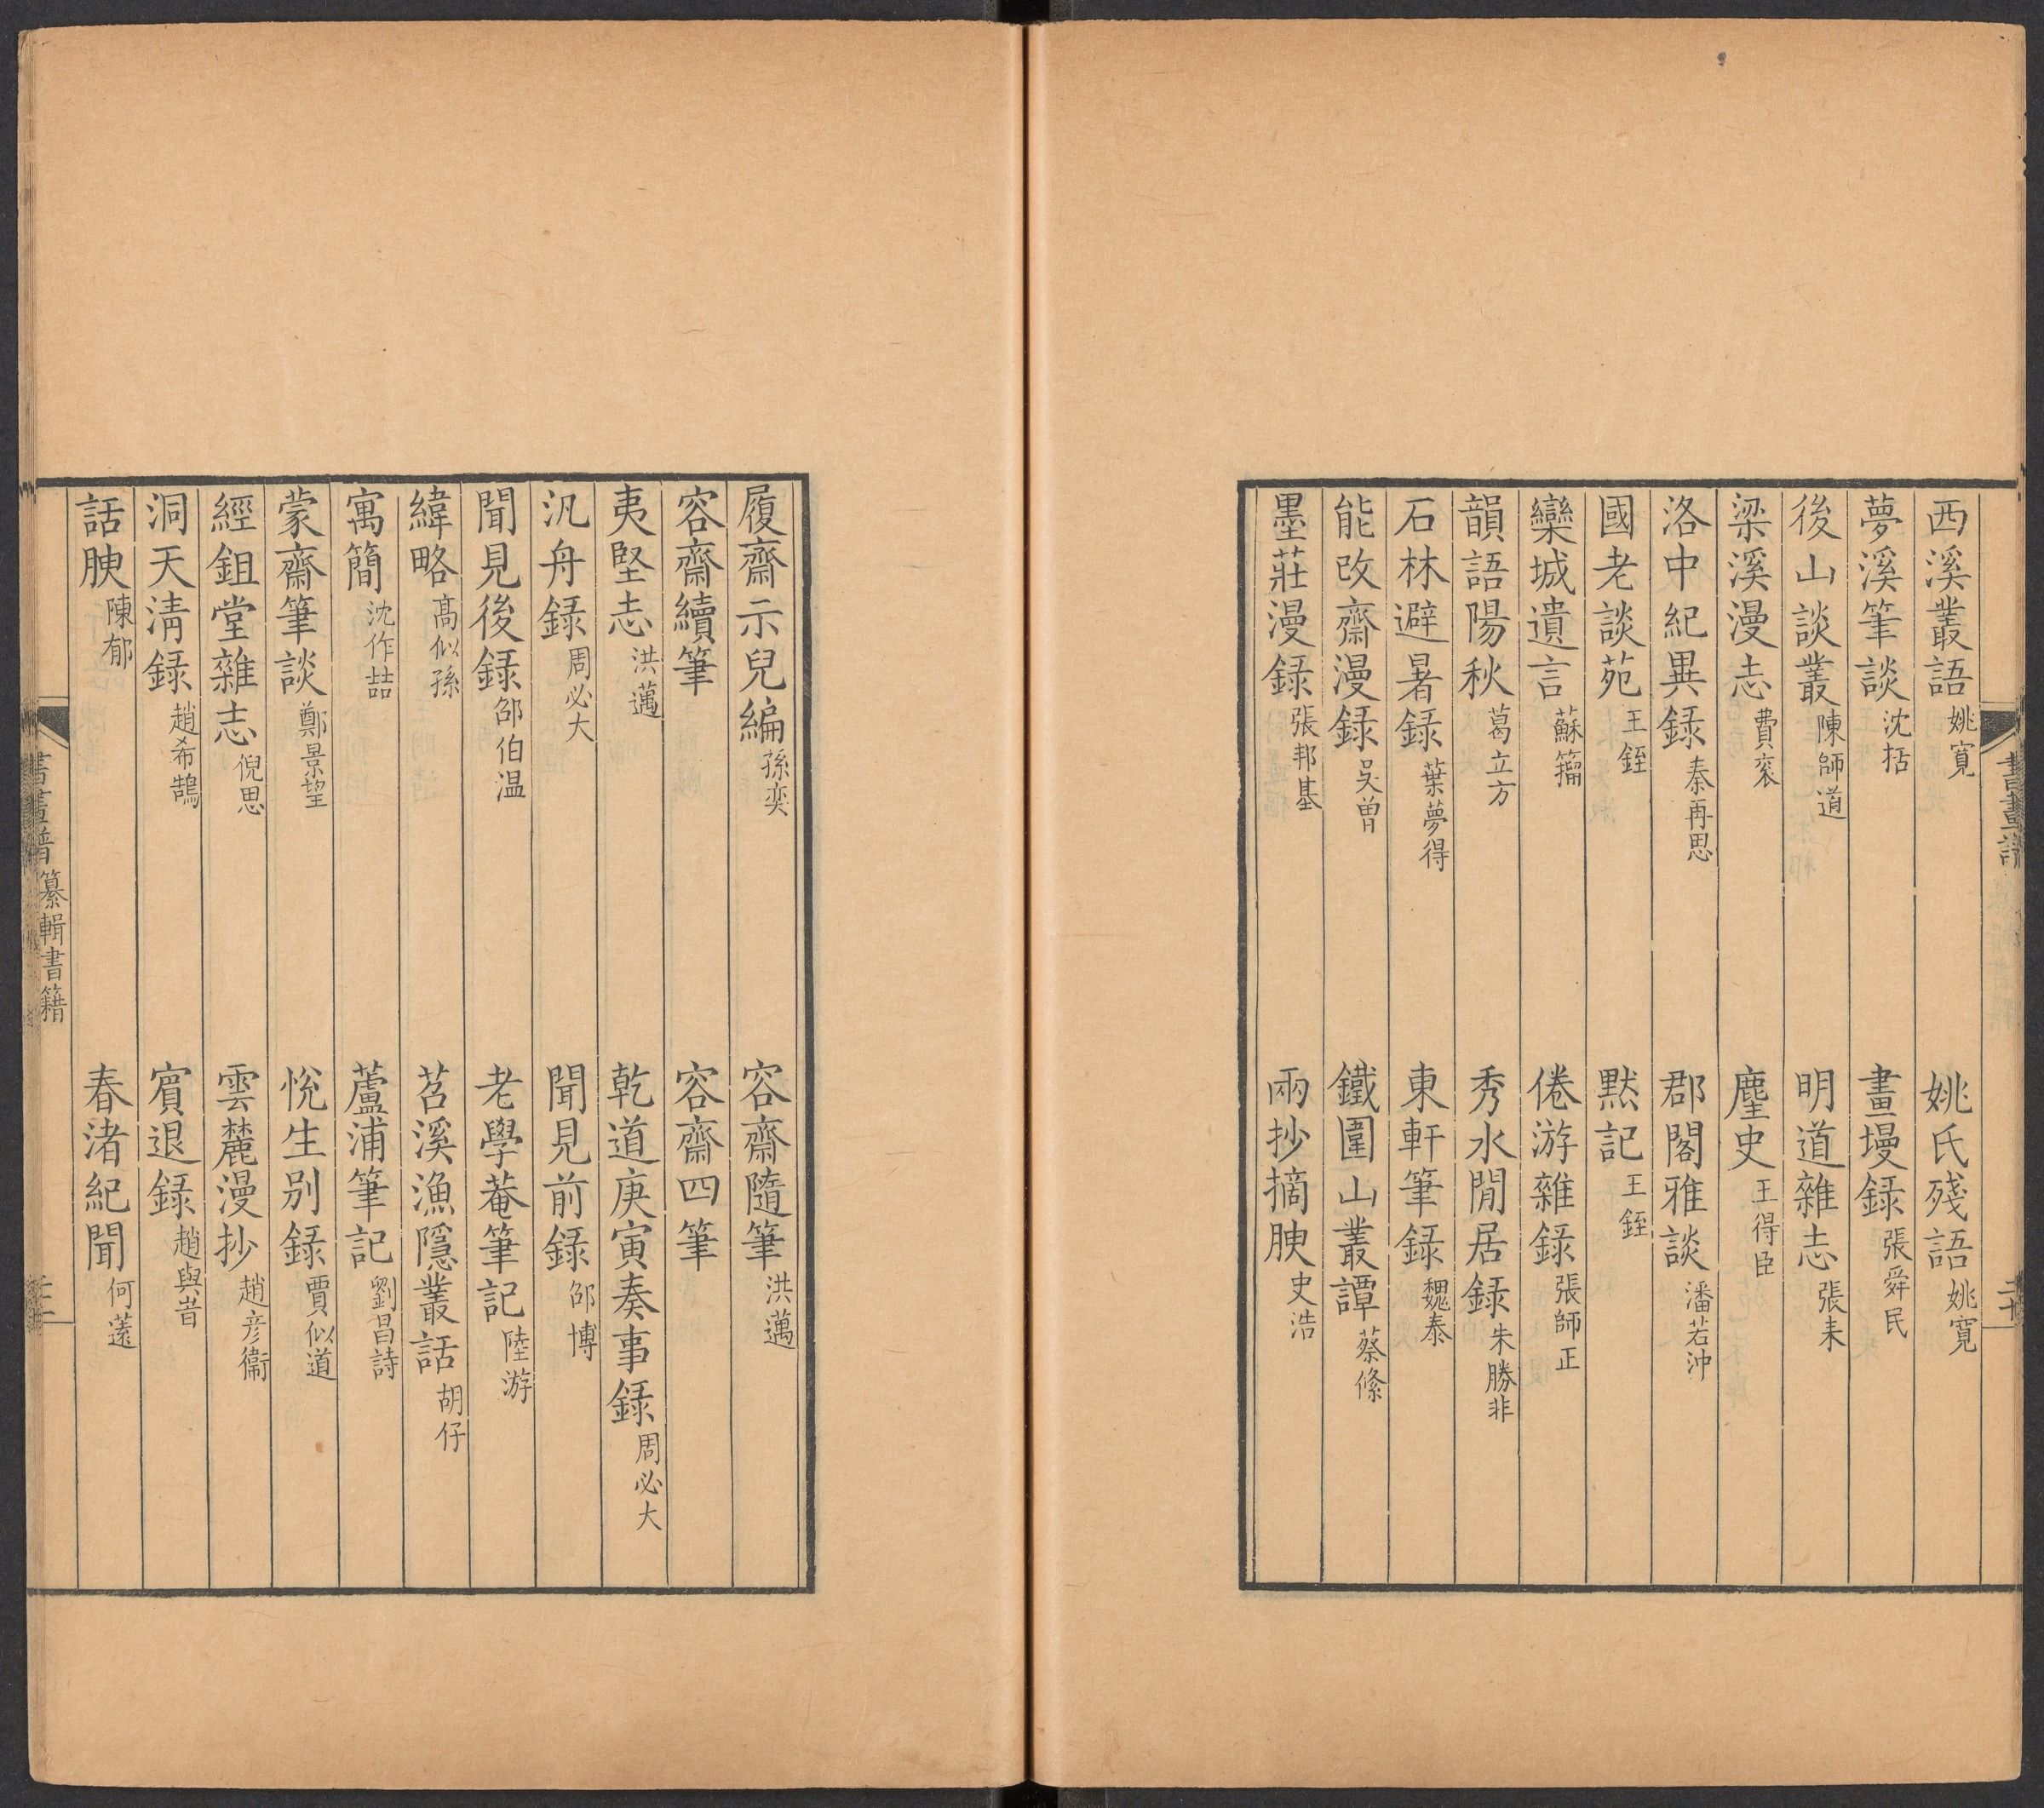 西溪叢語 姚寬 姚氏殘語 姚寬
夢溪筆談 沈括 畫墁錄 張舜民
後山談叢 陳師道 明道雜志 張耒
梁溪漫志 費袞 麈史 王得臣
洛中紀異錄 秦再思 郡閣雅談 潘若沖
國老談苑 王銍 默記 王銍
欒城遺言 蘇籀 倦游雜錄 張師正
韻語陽秋 葛立方 秀水閒居錄 朱勝非
石林避暑錄 葉夢得 東軒筆錄 魏泰
能改齋漫錄 吳曾 鐵圍山叢譚 蔡絛
墨莊漫錄 張邦基 兩抄摘腴 史浩
履齋示兒編 孫奕 容齋隨筆 洪邁
容齋續筆 容齋四筆
夷堅志 洪邁 乾道庚寅奏事錄 周必大
汎舟錄 周必大 聞見前錄 邵博
聞見後錄 邵伯温 老學菴筆記 陸游
緯略 高似孫 苕溪漁隱叢話 胡仔
寓簡 沈作喆 蘆浦筆記 劉昌詩
蒙齋筆談 鄭景望 悅生別錄 賈似道
經鉏堂雜志 倪思 雲麓漫抄 趙彥衞
洞天清錄 趙希鵠 賓退錄 趙與旹
話腴 陳郁 春渚紀聞 何薳
書畫譜 纂輯書籍